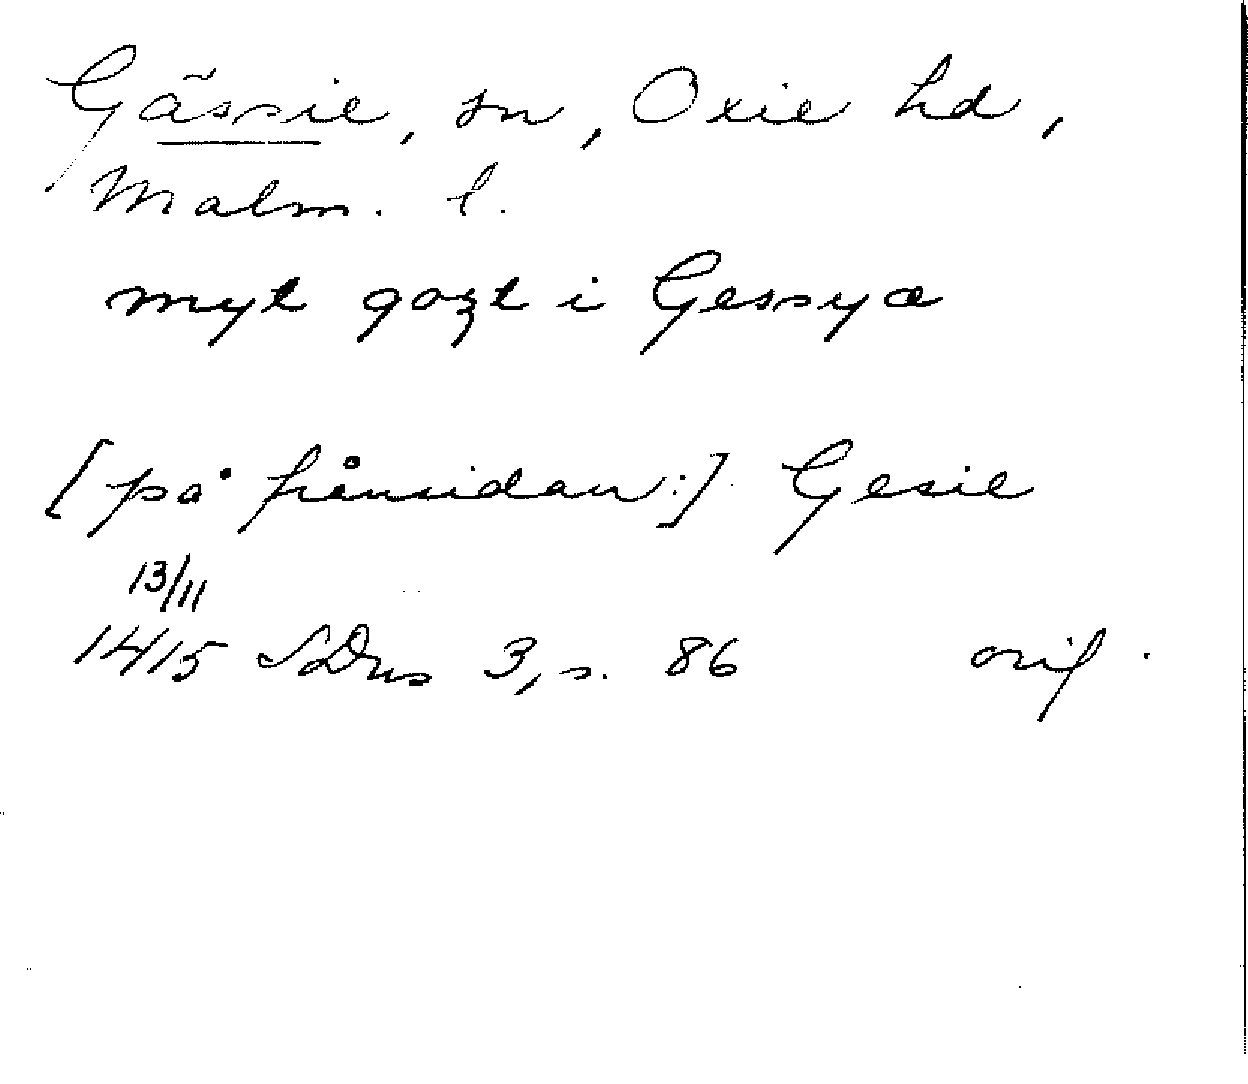 Gässie, sn, Oxie hd,
Malm. l.
myt goʒt i Gessyæ
[på frånsidan:] Gesie
13/11
1415 SDns 3, s. 86 orig.